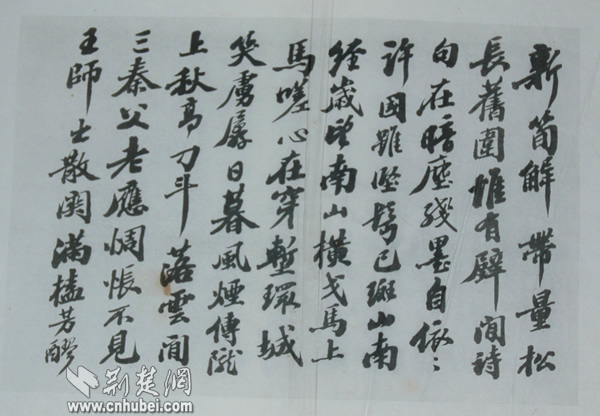 新筍解帶量松
長舊圍惟有壁間詩
句在暗塵殘墨自依〻
許國雖堅鬢已斑山南
經歲望南山橫戈馬上
馬嗟心在穿塹環城
笑虜孱日暮風煙傳隴
上秋高刁斗落雲間
三秦父老應惆悵不見
王師出散関滿榼芳醪
荆楚網
www.cnhubei.com